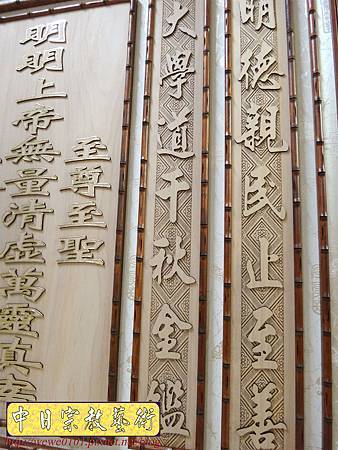 明德親民止至善
大學道千秋金鑑
至尊至聖
明明上帝無量清虛萬靈真宰
中日宗教藝術